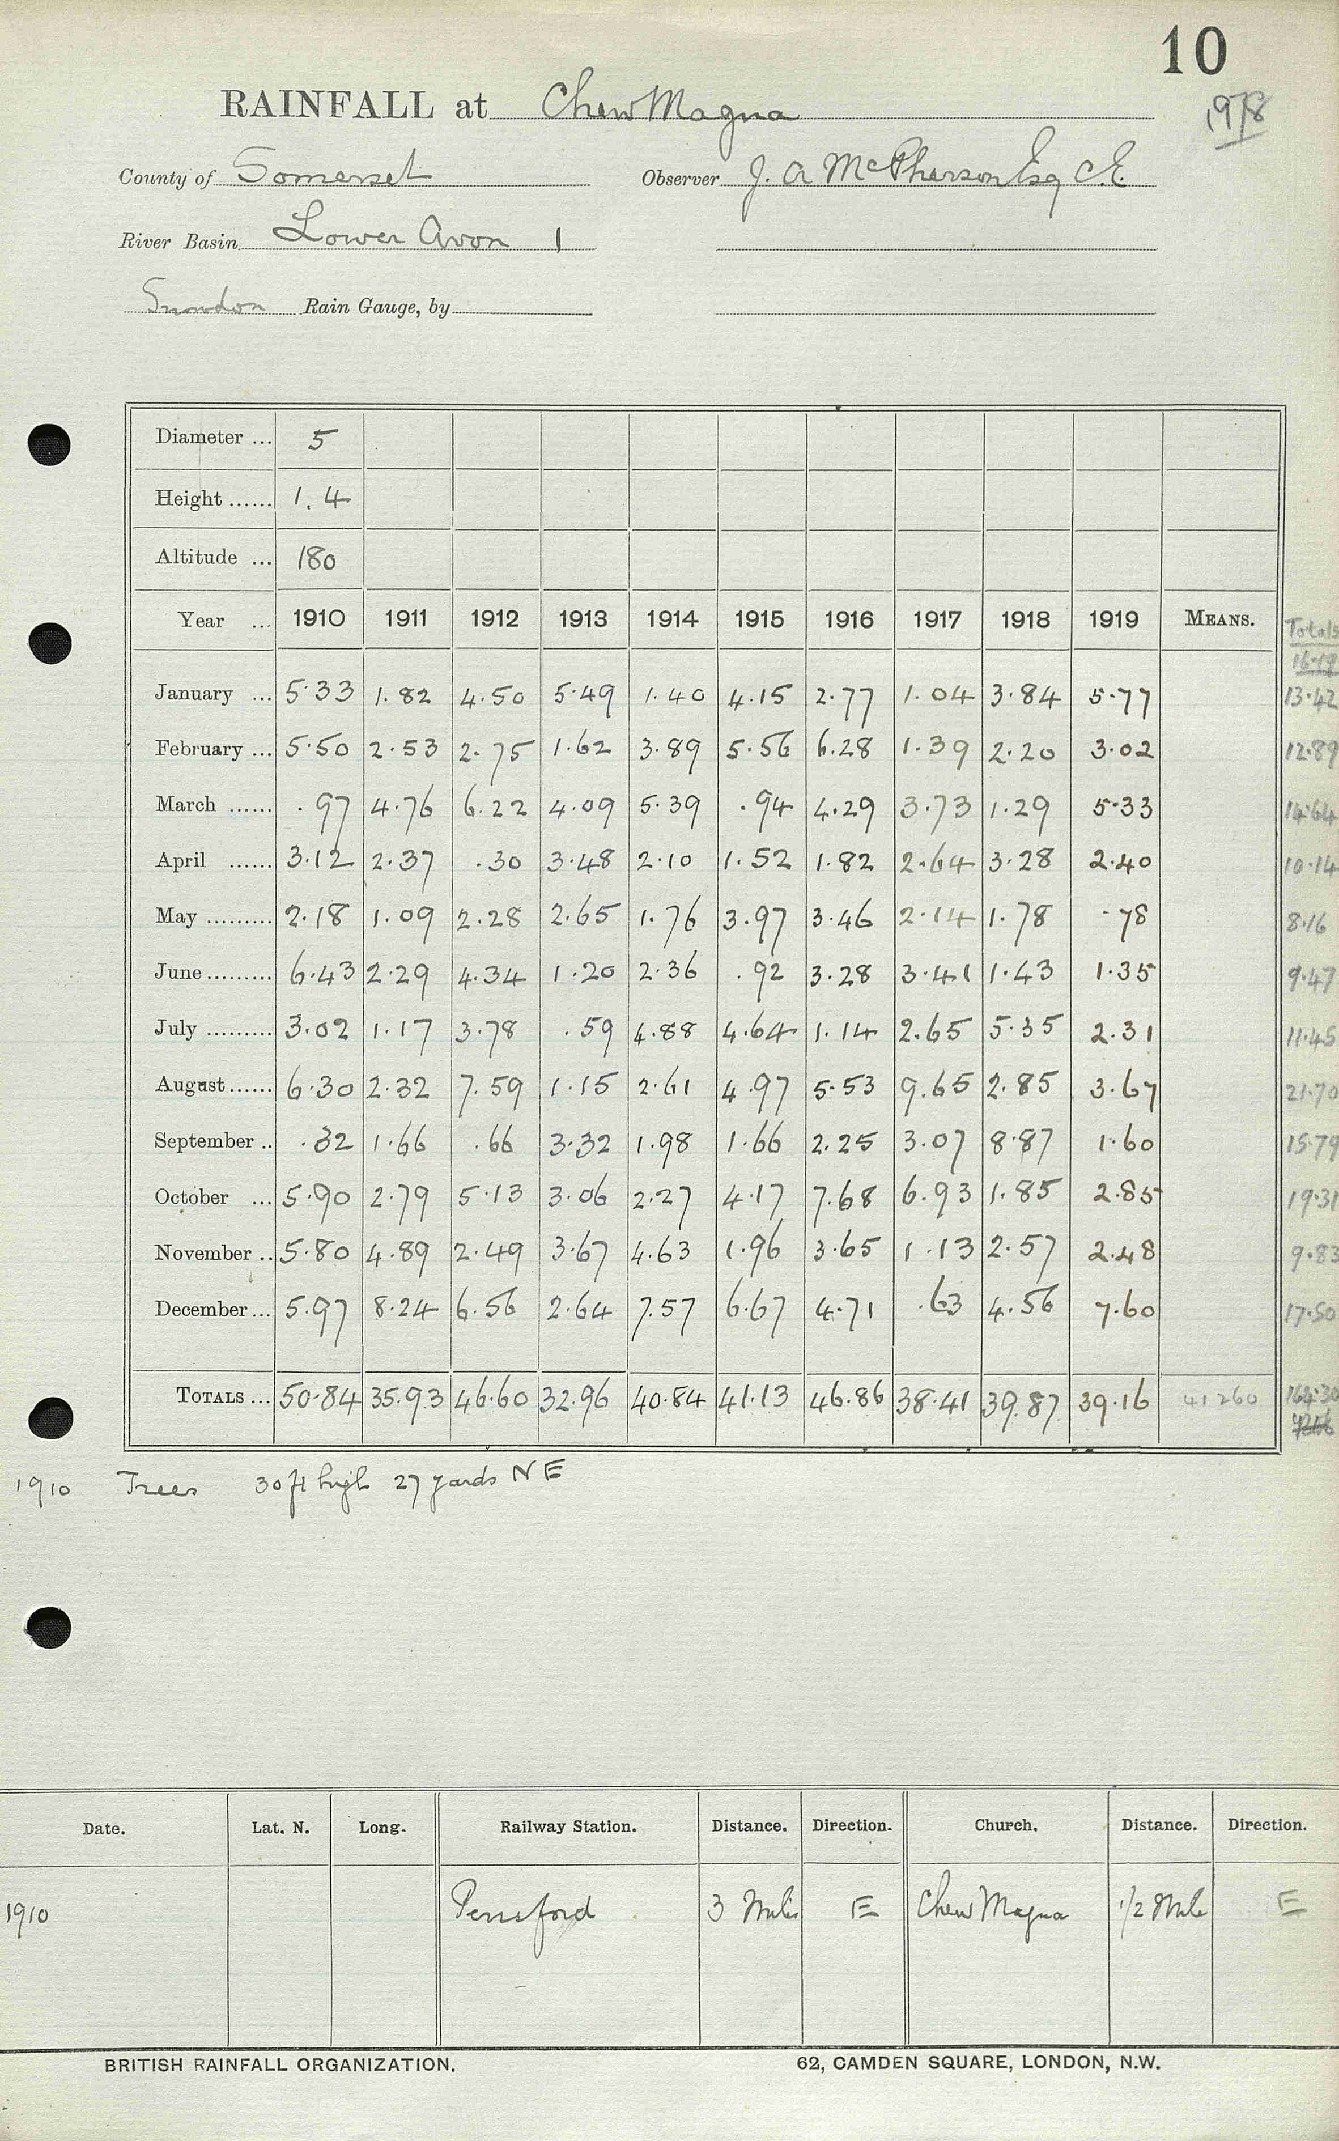 10
1978
RAINFALL at Chew Magna
County of Somerset Observer J. A McPherson Esq C.E.
River Basin Lower Avon 1
Snowdon Rain Gauge, by
Diameter ... 5
Height ...... 1.4
Altitude ... 180
Year ... 1910 1911 1912 1913 1914 1915 1916 1917 1918 1919 MEANS. Totals
16-19
January ... 5.33 1.82 4.50 5.49 1.40 4.15 2.77 1.04 3.84 5.77 13.42
February ... 5.50 2.53 2.75 1.62 3.89 5.56 6.28 1.39 2.20 3.02 12.89
March ...... .97 4.76 6.22 4.09 5.39 .94 4.29 3.73 1.29 5.33 14.64
April ...... 3.12 2.37 .30 3.48 2.10 1.52 1.82 2.64 3.28 2.40 10.14
May ......... 2.18 1.09 2.28 2.65 1.76 3.97 3.46 2.14 1.78 .78 8.16
June ......... 6.43 2.29 4.34 1.20 2.36 .92 3.28 3.41 1.43 1.35 9.47
July ......... 3.02 1.17 3.78 .59 4.88 4.64 1.14 2.65 5.35 2.31 11.45
August ...... 6.30 2.32 7.59 1.15 2.61 4.97 5.53 9.65 2.85 3.67 21.70
September .. .32 1.66 .66 3.32 1.98 1.66 2.25 3.07 8.87 1.60 15.79
October ... 5.90 2.79 5.13 3.06 2.27 4.17 7.68 6.93 1.85 2.85 19.31
November .. 5.80 4.89 2.49 3.67 4.63 1.96 3.65 1.13 2.57 2.48 9.83
December ... 5.97 8.24 6.56 2.64 7.57 6.67 4.71 .63 4.56 7.60 17.50
TOTALS ... 50.84 35.93 46.60 32.96 40.84 41.13 46.86 38.41 39.87 39.16 41260 164.30
1910 Trees 30 ft high 27 yards N E
Date. Lat. N. Long. Railway Station. Distance. Direction. Church. Distance. Direction.
1910 Pensford 3 Miles E Chew Magna 1/2 Mile E
BRITISH RAINFALL ORGANIZATION. 62, CAMDEN SQUARE, LONDON, N.W.